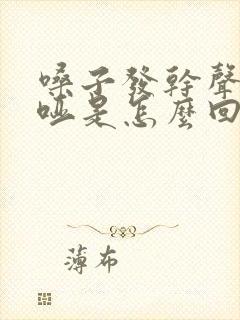 嗓子發幹聲
啞是怎麼回
薄布